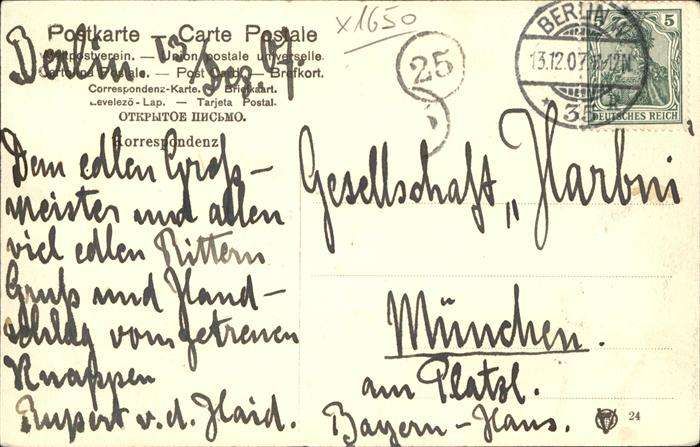 Postkarte — Carte Postale
Weltpostverein. — Union postale universelle.
Cartolina Postale. — Post Card. — Brefkort.
Correspondenz-Karte. Briefkaart.
Levelező-Lap. — Tarjeta Postal.
ОТКРЫТОЕ ПИСЬМО.
Korrespondenz
Berlin. 13 Dez. 07.
x1650
25
BERLIN W.
13.12.07
35
5
DEUTSCHES REICH
Dem edlen Groß-
meister und allen
viel edlen Rittern
Gruß und Hand-
schlag vom getreuen
Knappen
Rupert v. d. Haid.
Gesellschaft „Harbni"
München.
am Platzl.
Bayern-Haus.
24